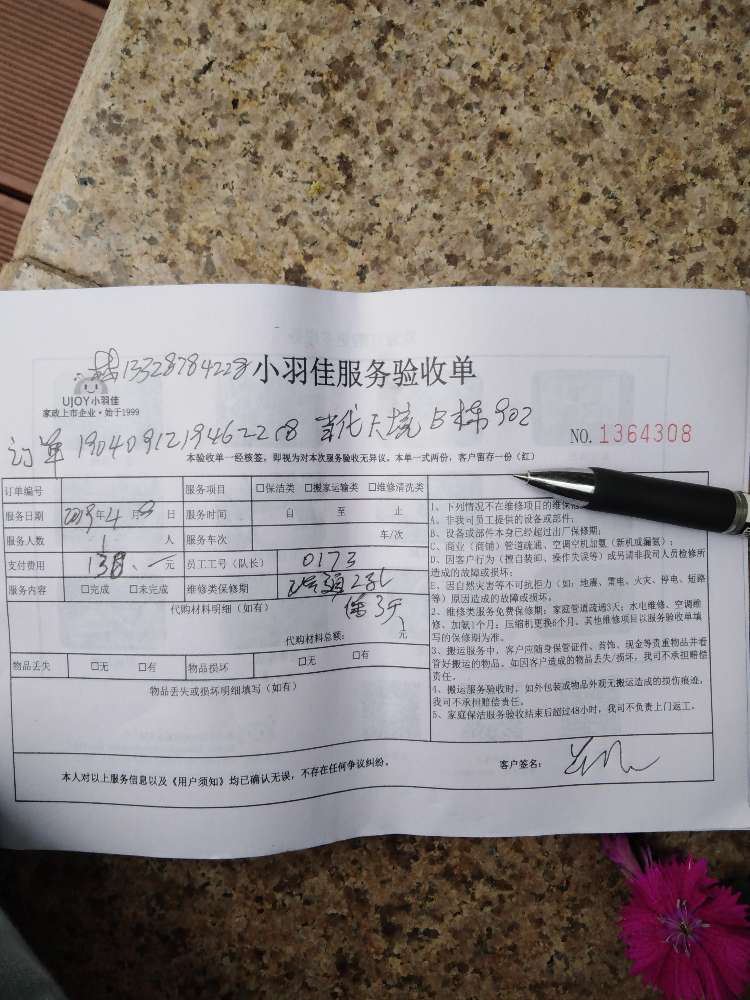 13328784228 小羽佳服务验收单
UJOY小羽佳
家政上市企业·始于1999
订单 1904091219462208 当代天境B栋902
NO. 1364308
本验收单一经核签，即视为对本次服务验收无异议。本单一式两份，客户留存一份（红）
订单编号 服务项目 □保洁类 □搬家运输类 □维修清洗类
服务日期 2019年4月 日 服务时间 自 至 止
服务人数 1 人 服务车次 车/次
支付费用 138.一元 员工工号（队长） 0173
服务内容 □完成 □未完成 维修类保修期
保3天
代购材料明细（如有）
代购材料总额： 元
物品丢失 □无 □有 物品损坏 □无 □有
物品丢失或损坏明细填写（如有）
1、下列情况不在维修项目的维保
A、非我司员工提供的设备或部件；
B、设备或部件本身已经超过出厂保修期；
C、商业（商铺）管道疏通、空调空机加氨（新机或漏氨）；
D、因客户行为（擅自装卸、操作失误等）或另请非我司人员检修所
造成的故障或损坏；
E、因自然灾害等不可抗拒力（如：地震、雷电、火灾、停电、短路
等）原因造成的故障或损坏；
2、维修类服务免费保修期：家庭管道疏通3天；水电维修、空调维
修、加氨1个月；压缩机更换6个月。其他维修项目以服务验收单填
写的保修期为准。
3、搬运服务中，客户应随身保管证件、首饰、现金等贵重物品并看
管好搬运的物品。如因客户造成的物品丢失/损坏，我司不承担赔偿
责任。
4、搬运服务验收时，如外包装或物品外观无搬运造成的损伤痕迹，
我司不承担赔偿责任。
5、家庭保洁服务验收结束后超过48小时，我司不负责上门返工。
本人对以上服务信息以及《用户须知》均已确认无误，不存在任何争议纠纷。 客户签名：